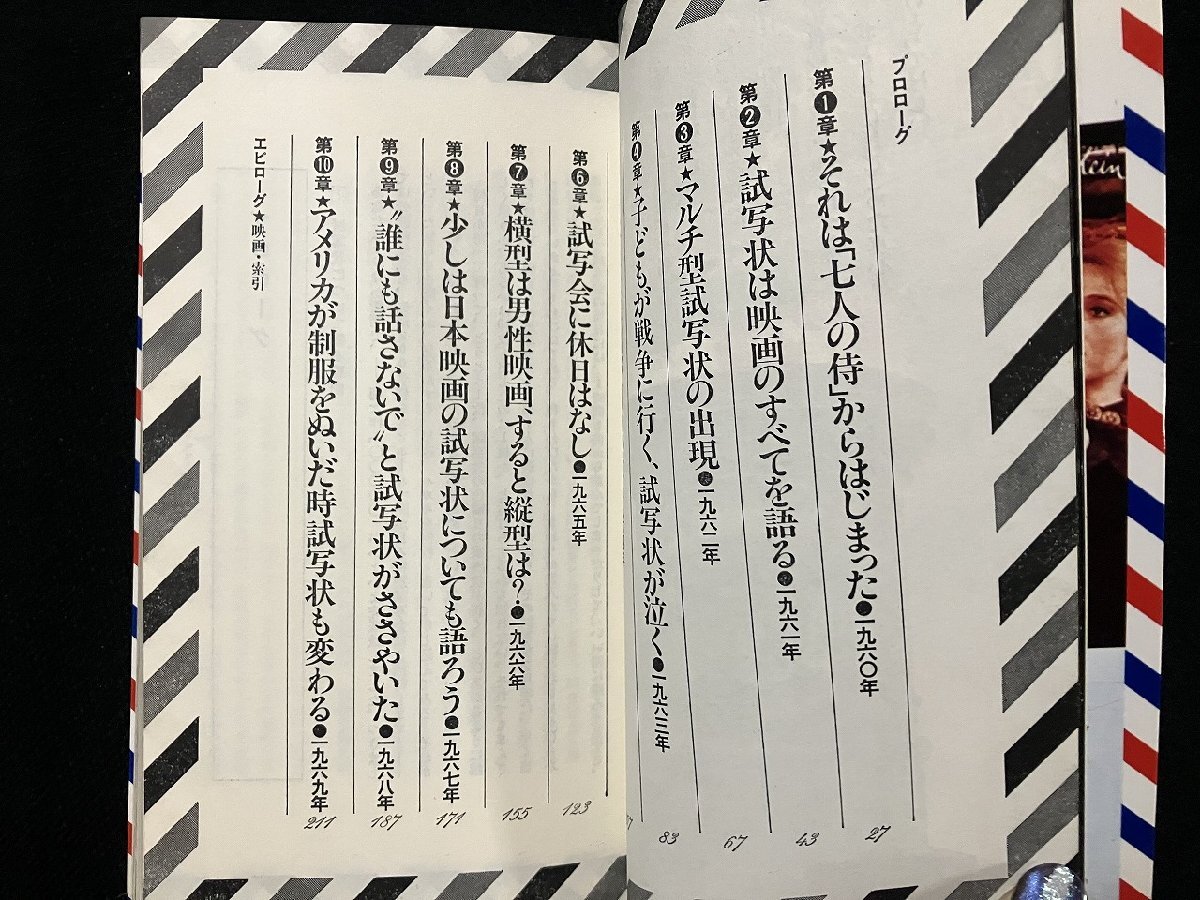 プロローグ
第1章★それは「七人の侍」からはじまった●一九六〇年 27
第2章★試写状は映画のすべてを語る●一九六一年 43
第3章★マルチ型試写状の出現●一九六二年 67
第4章★子どもが戦争に行く、試写状が泣く●一九六三年 83
第6章★試写会に休日はなし●一九六五年 123
第7章★横型は男性映画、すると縦型は?●一九六六年 155
第8章★少しは日本映画の試写状についても語ろう●一九六七年 171
第9章★〝誰にも話さないで〟と試写状がささやいた●一九六八年 187
第10章★アメリカが制服をぬいだ時試写状も変わる●一九六九年 211
エピローグ★映画・索引